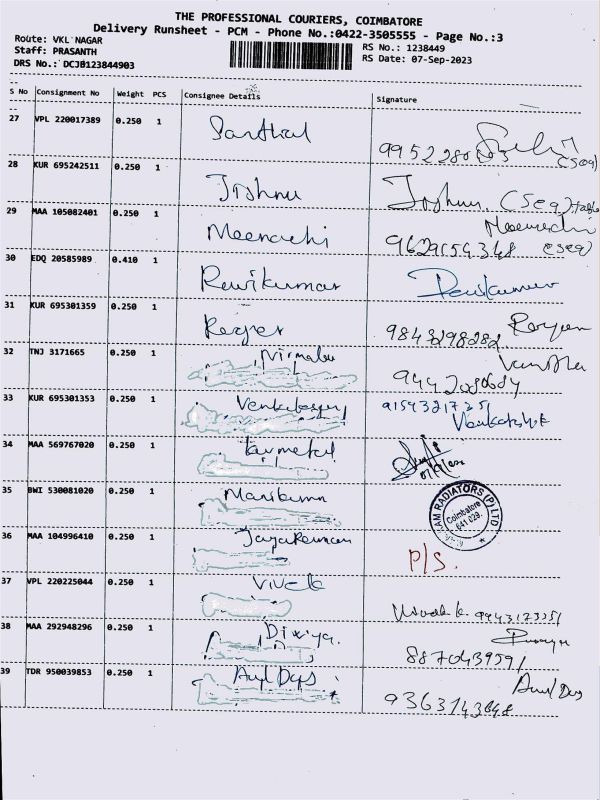 THE PROFESSIONAL COURIERS, COIMBATORE
Delivery Runsheet - PCM - Phone No.:0422-3505555 - Page No.:3
Route: VKL NAGAR
RS No.: 1238449
Staff: PRASANTH
RS Date: 07-Sep-2023
DRS No.: DCJB123844903
S No Consignment No Weight PCS Consignee Details Signature
27 VPL 220017389 0.250 1
(seq)
28 KUR 695242511 0.250 1 Jishnu
Jishnu (seq)
29 MAA 105082401 0.250 1 Meenachi
9629154348 (seq)
30 EDQ 20585989 0.410 1 Ravikumar
31 KUR 695301359 0.250 1
9843298282
32 TNJ 3171665 0.250 1 Nirmala
33 KUR 695301353 0.250 1
9154321735
34 MAA 569767020 0.250 1
35 BWI 530081020 0.250 1 Manikumar
RADIATORS (P) LTD
Coimbatore
641 029.
36 MAA 104996410 0.250 1 Jayakumar P/S.
37 VPL 220225044 0.250 1 Vivek
Vivek k.
38 MAA 292948296 0.250 1 Dixiya.
8870439591
39 TDR 950039853 0.250 1 Arul Das Arul Das